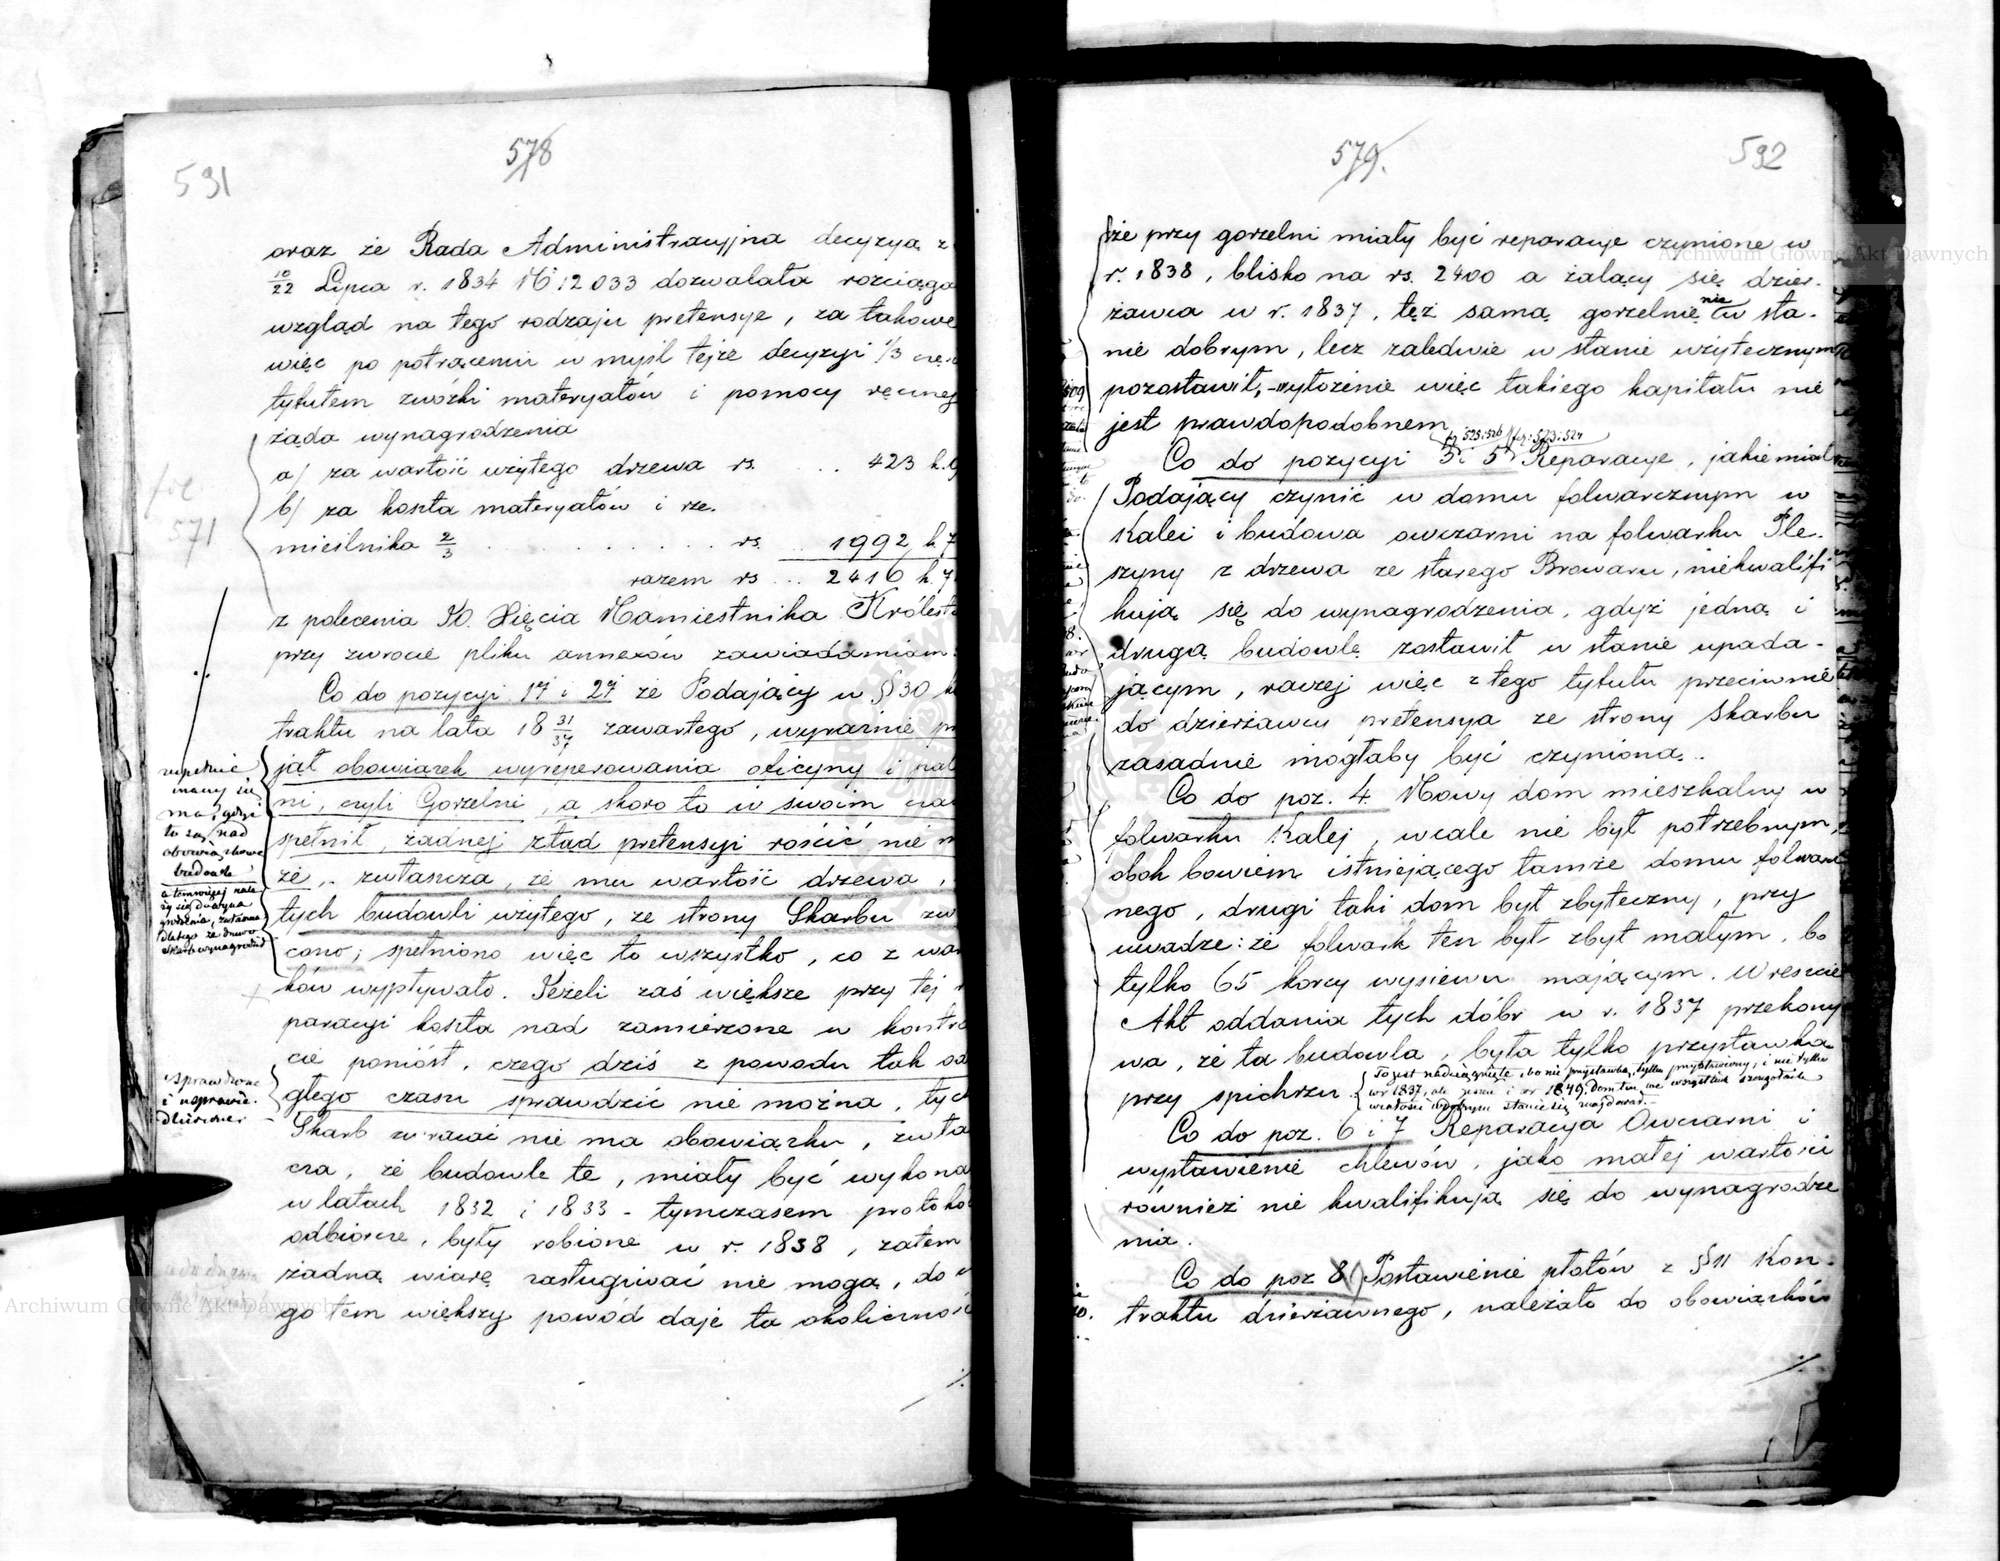 591
578
oraz że Rada Administracyjna decyzyą z
10/22 Lipca r. 1834 N 12033 dozwalała rozciąga
wzgląd na tego rodzaju pretensye, za takowe
więc po potrąceniu w myśl tejże decyzyi 1/3 częś
tytułem zwózki materyałów i pomocy ręcznej
żąda wynagrodzenia
a/ za wartość użytego drzewa rs. .. 423 k.
b/ za koszta materyałów i rze.
mieślnika 2/3 . . . . . . . rs. .. 1992 k. 7
razem rs ... 2416 k. 7
fol
571
z polecenia JO. Xięcia Namiestnika Królest
przy zwrocie pliku annexów zawiadamiam.
Co do pozycyi 1ej i 2ej że Podający w §30 k
traktu na lata 18 31/37 zawartego, wyraźnie p
jął obowiązek wyreperowania oficyny i pal
ni, czyli Gorzelni, a skoro to w swoim cza
spełnił, żadnej ztąd pretensyi rościć nie m
że, .. zwłaszcza, że mu wartość drzewa,
tych budowli użytego, ze strony Skarbu zw
cono; spełniono więc to wszystko, co z war
ków wypływało. Jeżeli zaś większe przy tej
paracyi koszta nad zamierzone w kontra
cie poniósł, czego dziś z powodu tak od
głego czasu sprawdzić nie można, tych
Skarb zwracać nie ma obowiązku, zwła
cza, że budowle te, miały być wykona
w latach 1832 i 1833 - tymczasem protoko
odbiorcze, były robione w r. 1838, zatem
żadną wiarę zasługiwać nie mogą, do
go tem większy powód daje ta okoliczność
./.
zupełnie
inaczej się
ma, gdyż
to są nad
obowiązkowe
budowle
a temwięcej nale
ży się
zwłaszcza
dlatego że drzewo
Skarb wynagrodził
sprawdzone
i usprawie.
dliwione.
592
579.
że przy gorzelni miały być reparacye czynione w
r. 1838, blisko na rs. 2400 a żalący się dzier.
żawca w r. 1837, też samą gorzelnię nie w sta.
nie dobrym, lecz zaledwie w stanie użytecznym
pozostawił, - wyłożenie więc takiego kapitału nie
jest prawdopodobnem
fol 525 i 526 / fol: 523 i 524
Co do pozycyi 3 i 5ej Reparacye, jakie miał
Podający czynić w domu folwarcznym w
Kalei i budowa owczarni na folwarku Ple.
szyny z drzewa ze starego Browaru, niekwalifi
kują się do wynagrodzenia, gdyż jedną i
drugą budowlę zostawił w stanie upada-
jącym, raczej więc z tego tytułu przeciwnie
do dzierżawcy pretensya ze strony Skarbu
zasadnie mogłaby być czynioną..
Co do poz. 4. Nowy dom mieszkalny w
folwarku Kalej, wcale nie był potrzebnym,
obok bowiem istniejącego tamże domu folwarcz
nego, drugi taki dom był zbyteczny, przy
uwadze: że folwark ten był zbyt małym, bo
tylko 65 korcy wysiewu mającym. Wreszcie
Akt oddania tych dóbr w r. 1837 przekony
wa, że ta budowla, była tylko przystawką
przy spichrzu.
To jest naciągnięte, bo nie przystawka, tylko przystawiony, i nie tylko
w r 1837, ale jeszcze i w r 1849. Dom ten we wszystkich szczegółach
w całości w dobrym stanie się znajdował.
Co do poz. 6 i 7 Reparacya Owczarni i
wystawienie chlewów, jako małej wartości
również nie kwalifikują się do wynagrodze
nia.
Co do poz 8/ Postawienie płotów z §11 Kon.
traktu dzierżawnego, należało do obowiązków
./.
Archiwum Główne Akt Dawnych
Archiwum Główne Akt Dawnych